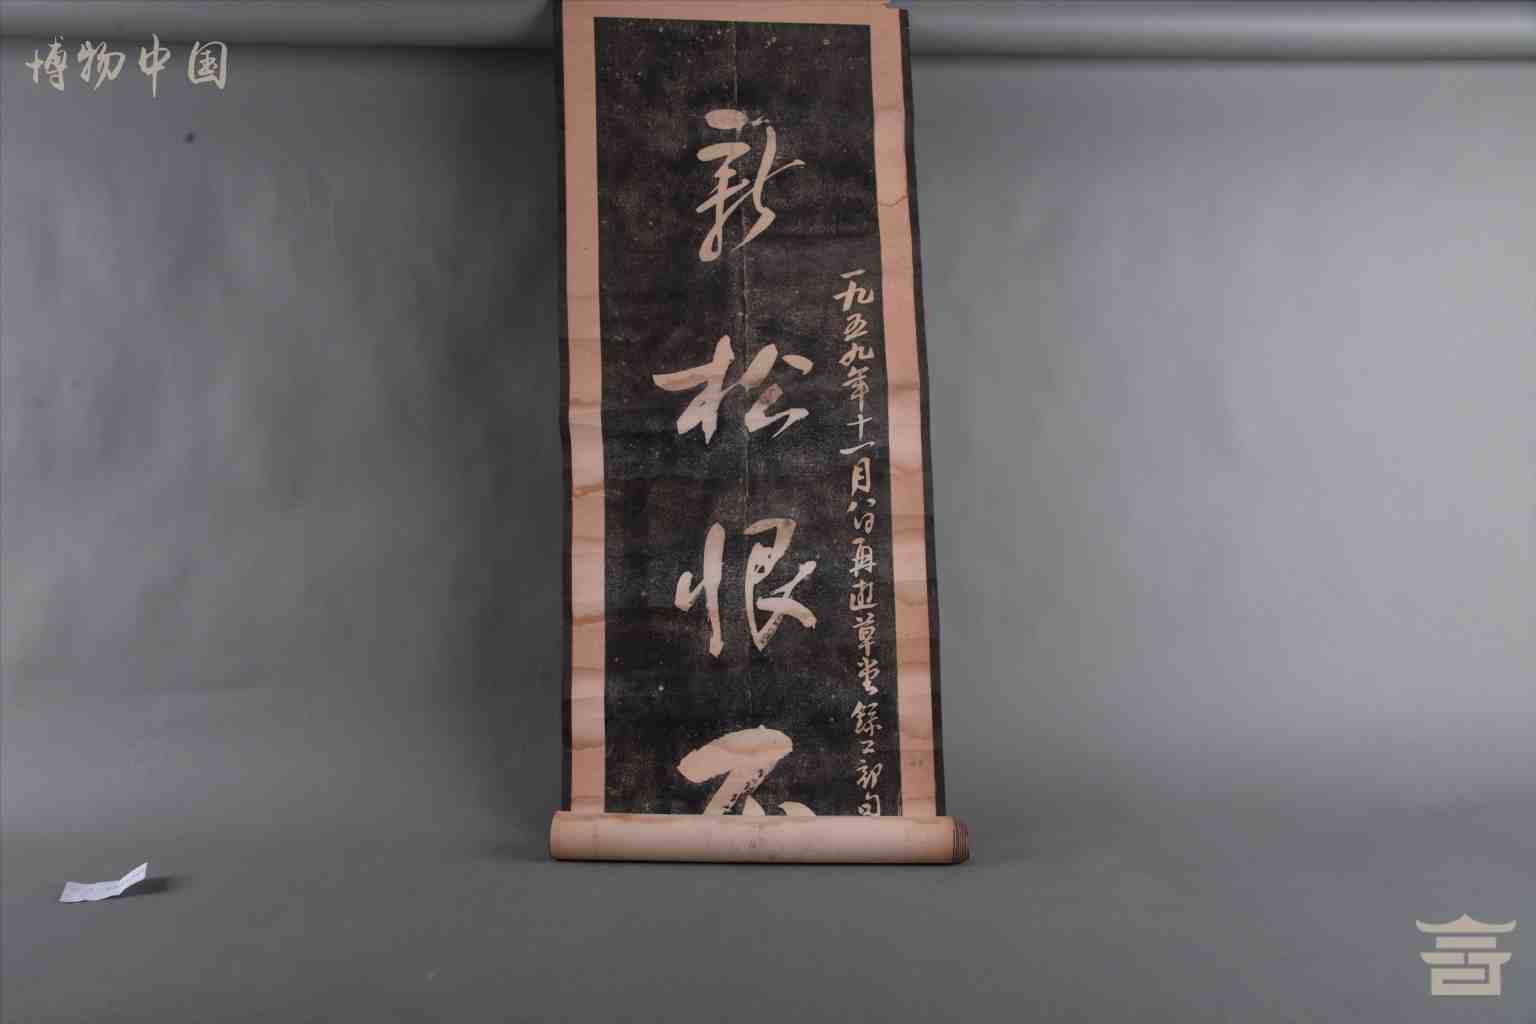 博物中国
一九五九年十一月八日再游草堂録工部句
新松恨不